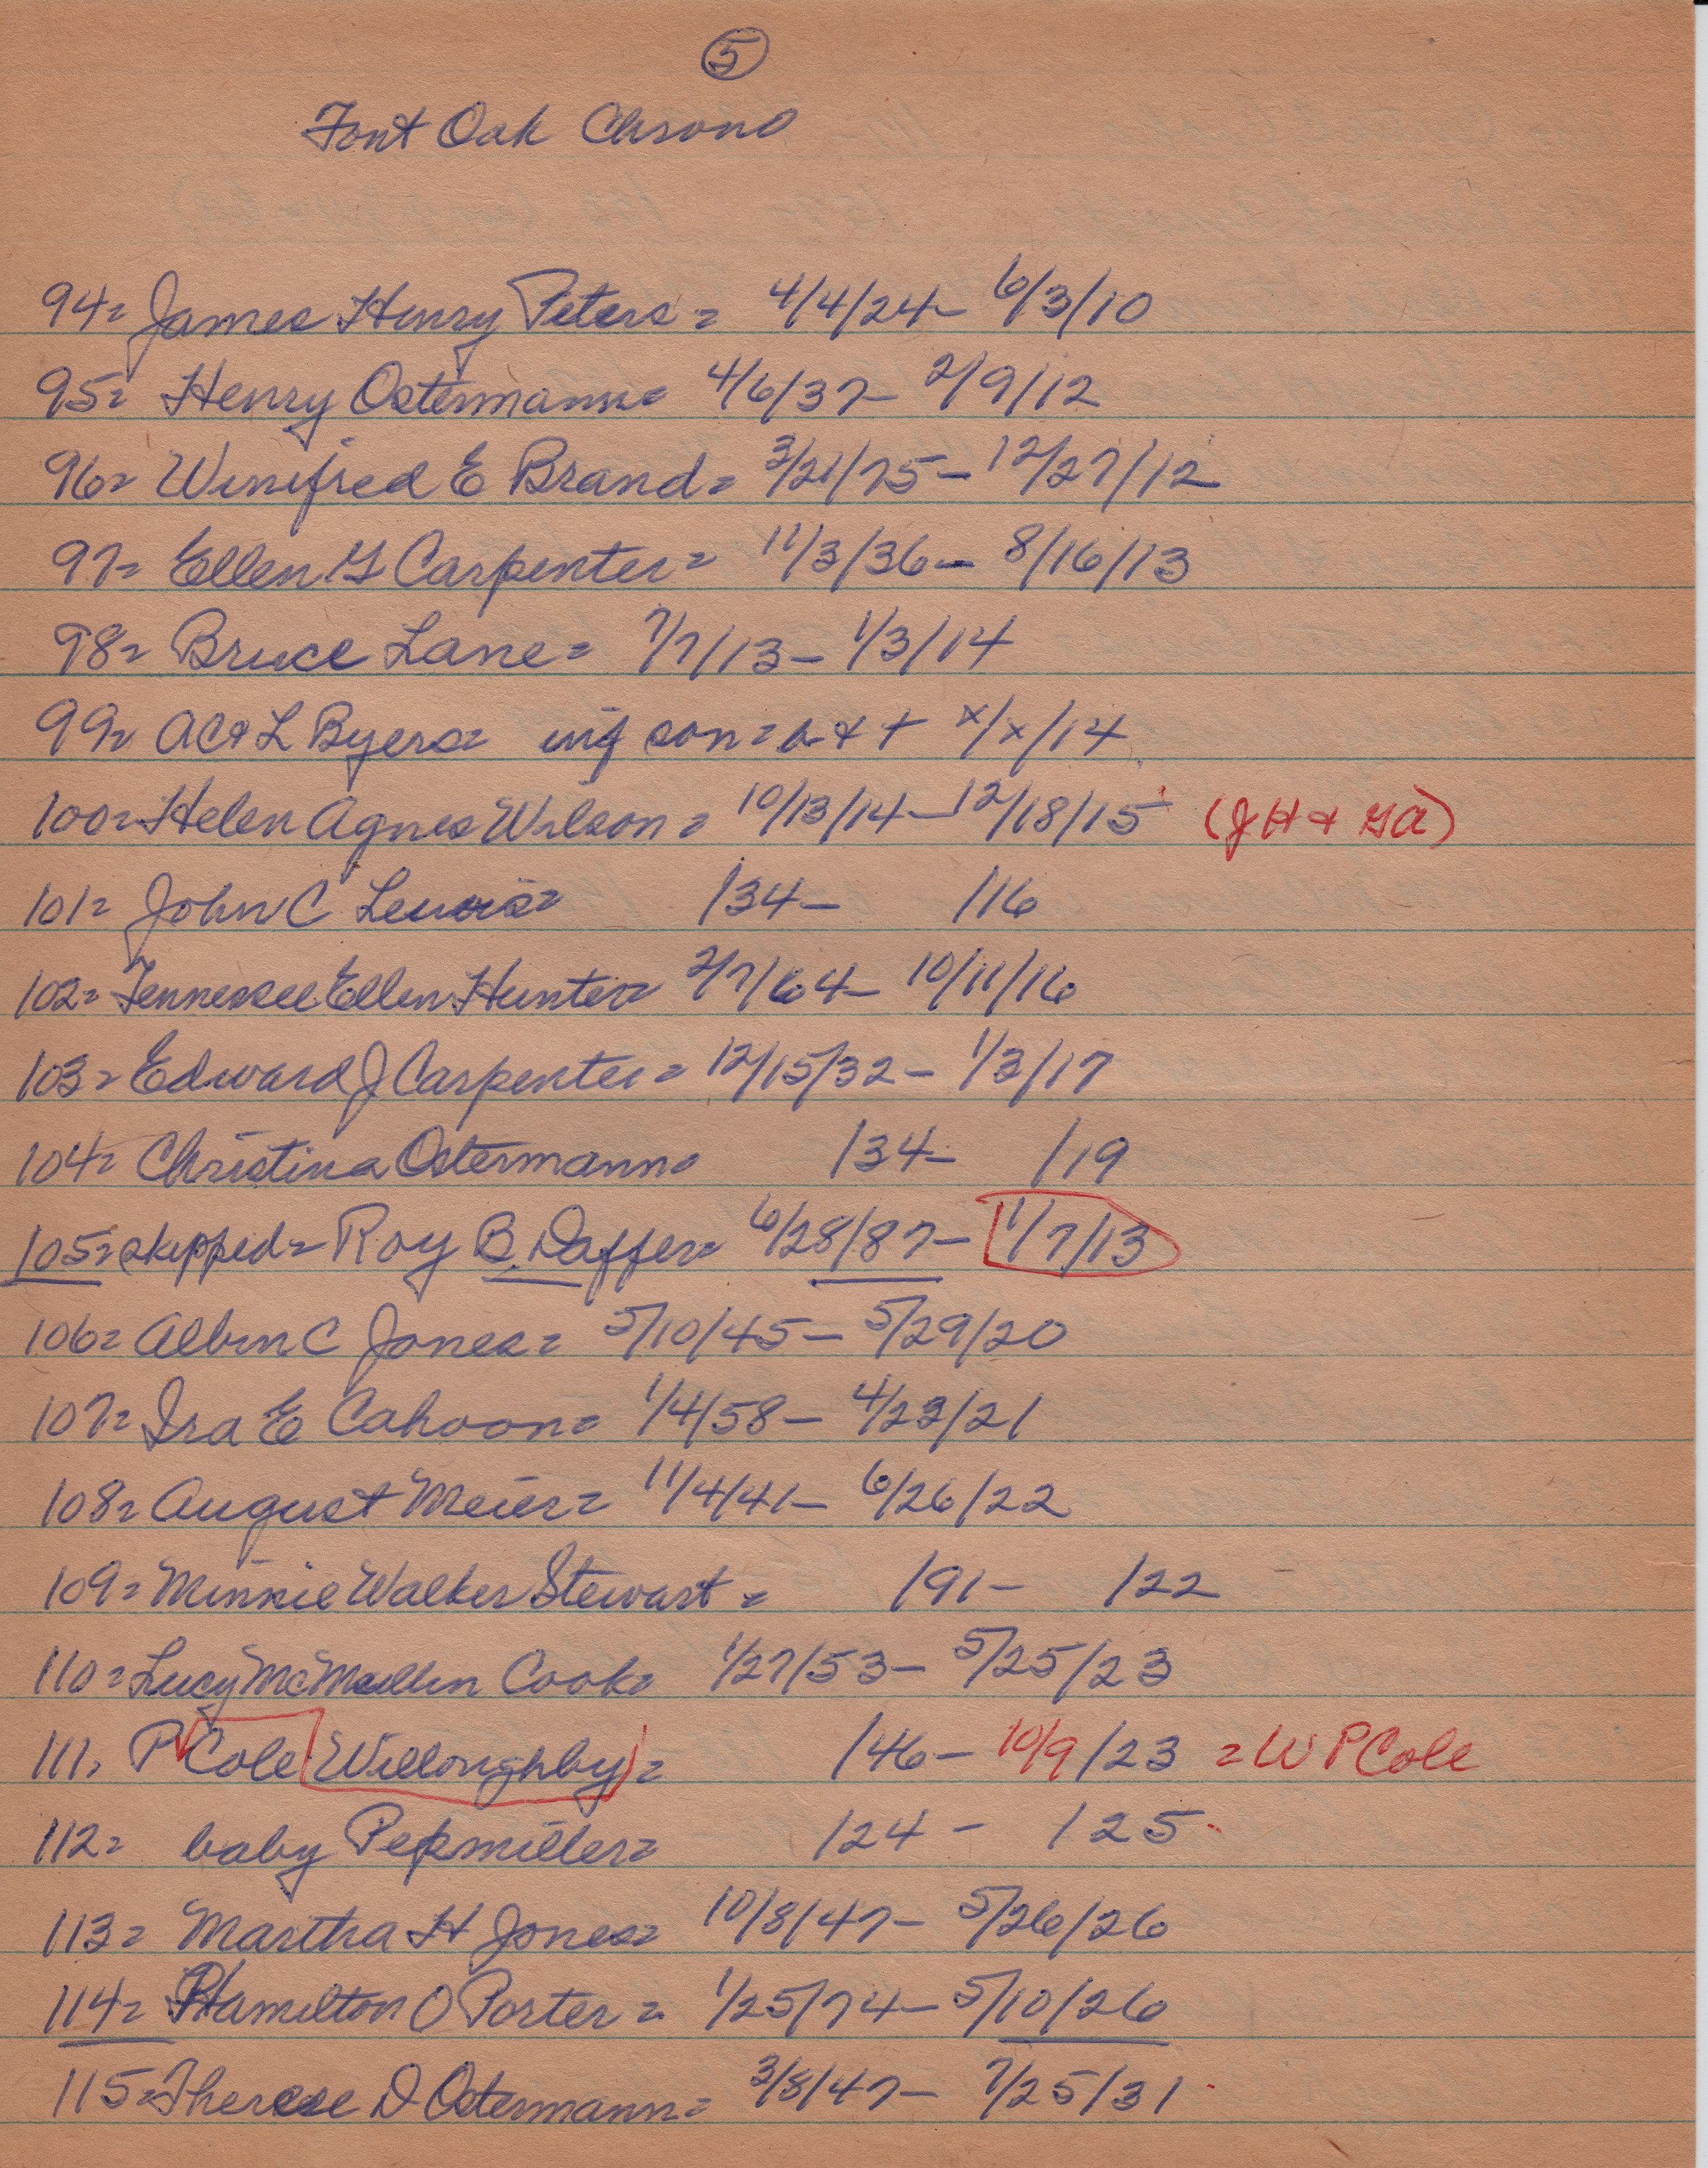 5
Font Oak Chrono
94= James Henry Peters= 4/4/24- 6/3/10
95= Henry Ostermann= 4/6/37- 2/9/12
96= Winifred E Brand= 3/21/75- 12/27/12
97= Ellen G Carpenter= 11/3/36- 8/16/13
98= Bruce Lane= 7/7/13- 1/3/14
99= AC& L Byers= inf son= b & + x/x/14
100= Helen Agnes Wilson= 10/13/14-12/18/15 (JH & GA)
101= John C Lewis= /34- /16
102= Tennessee Ellen Hunter= 2/7/64- 10/11/16
103= Edward J Carpenter= 12/15/32- 1/3/17
104= Christina Ostermann= /34- /19
105= skipped= Roy B. Daffer= 6/28/87- 1/7/13
106= Albin C Jones= 5/10/45- 5/29/20
107= Ira E Cahoon= 1/4/58- 4/23/21
108= August Meier= 11/4/41- 6/26/22
109= Minnie Walker Stewart= /91- /22
110= Lucy McMullin Cook= 1/27/53- 5/25/23
111= P Cole Willoughby= /46- 10/9/23 =W P Cole
112= baby Pepmiller= /24- /25
113= Martha H Jones= 10/8/47- 5/26/26
114= Hamilton O Porter= 1/25/74- 5/10/26
115= Therese D Ostermann= 3/8/47- 7/25/31